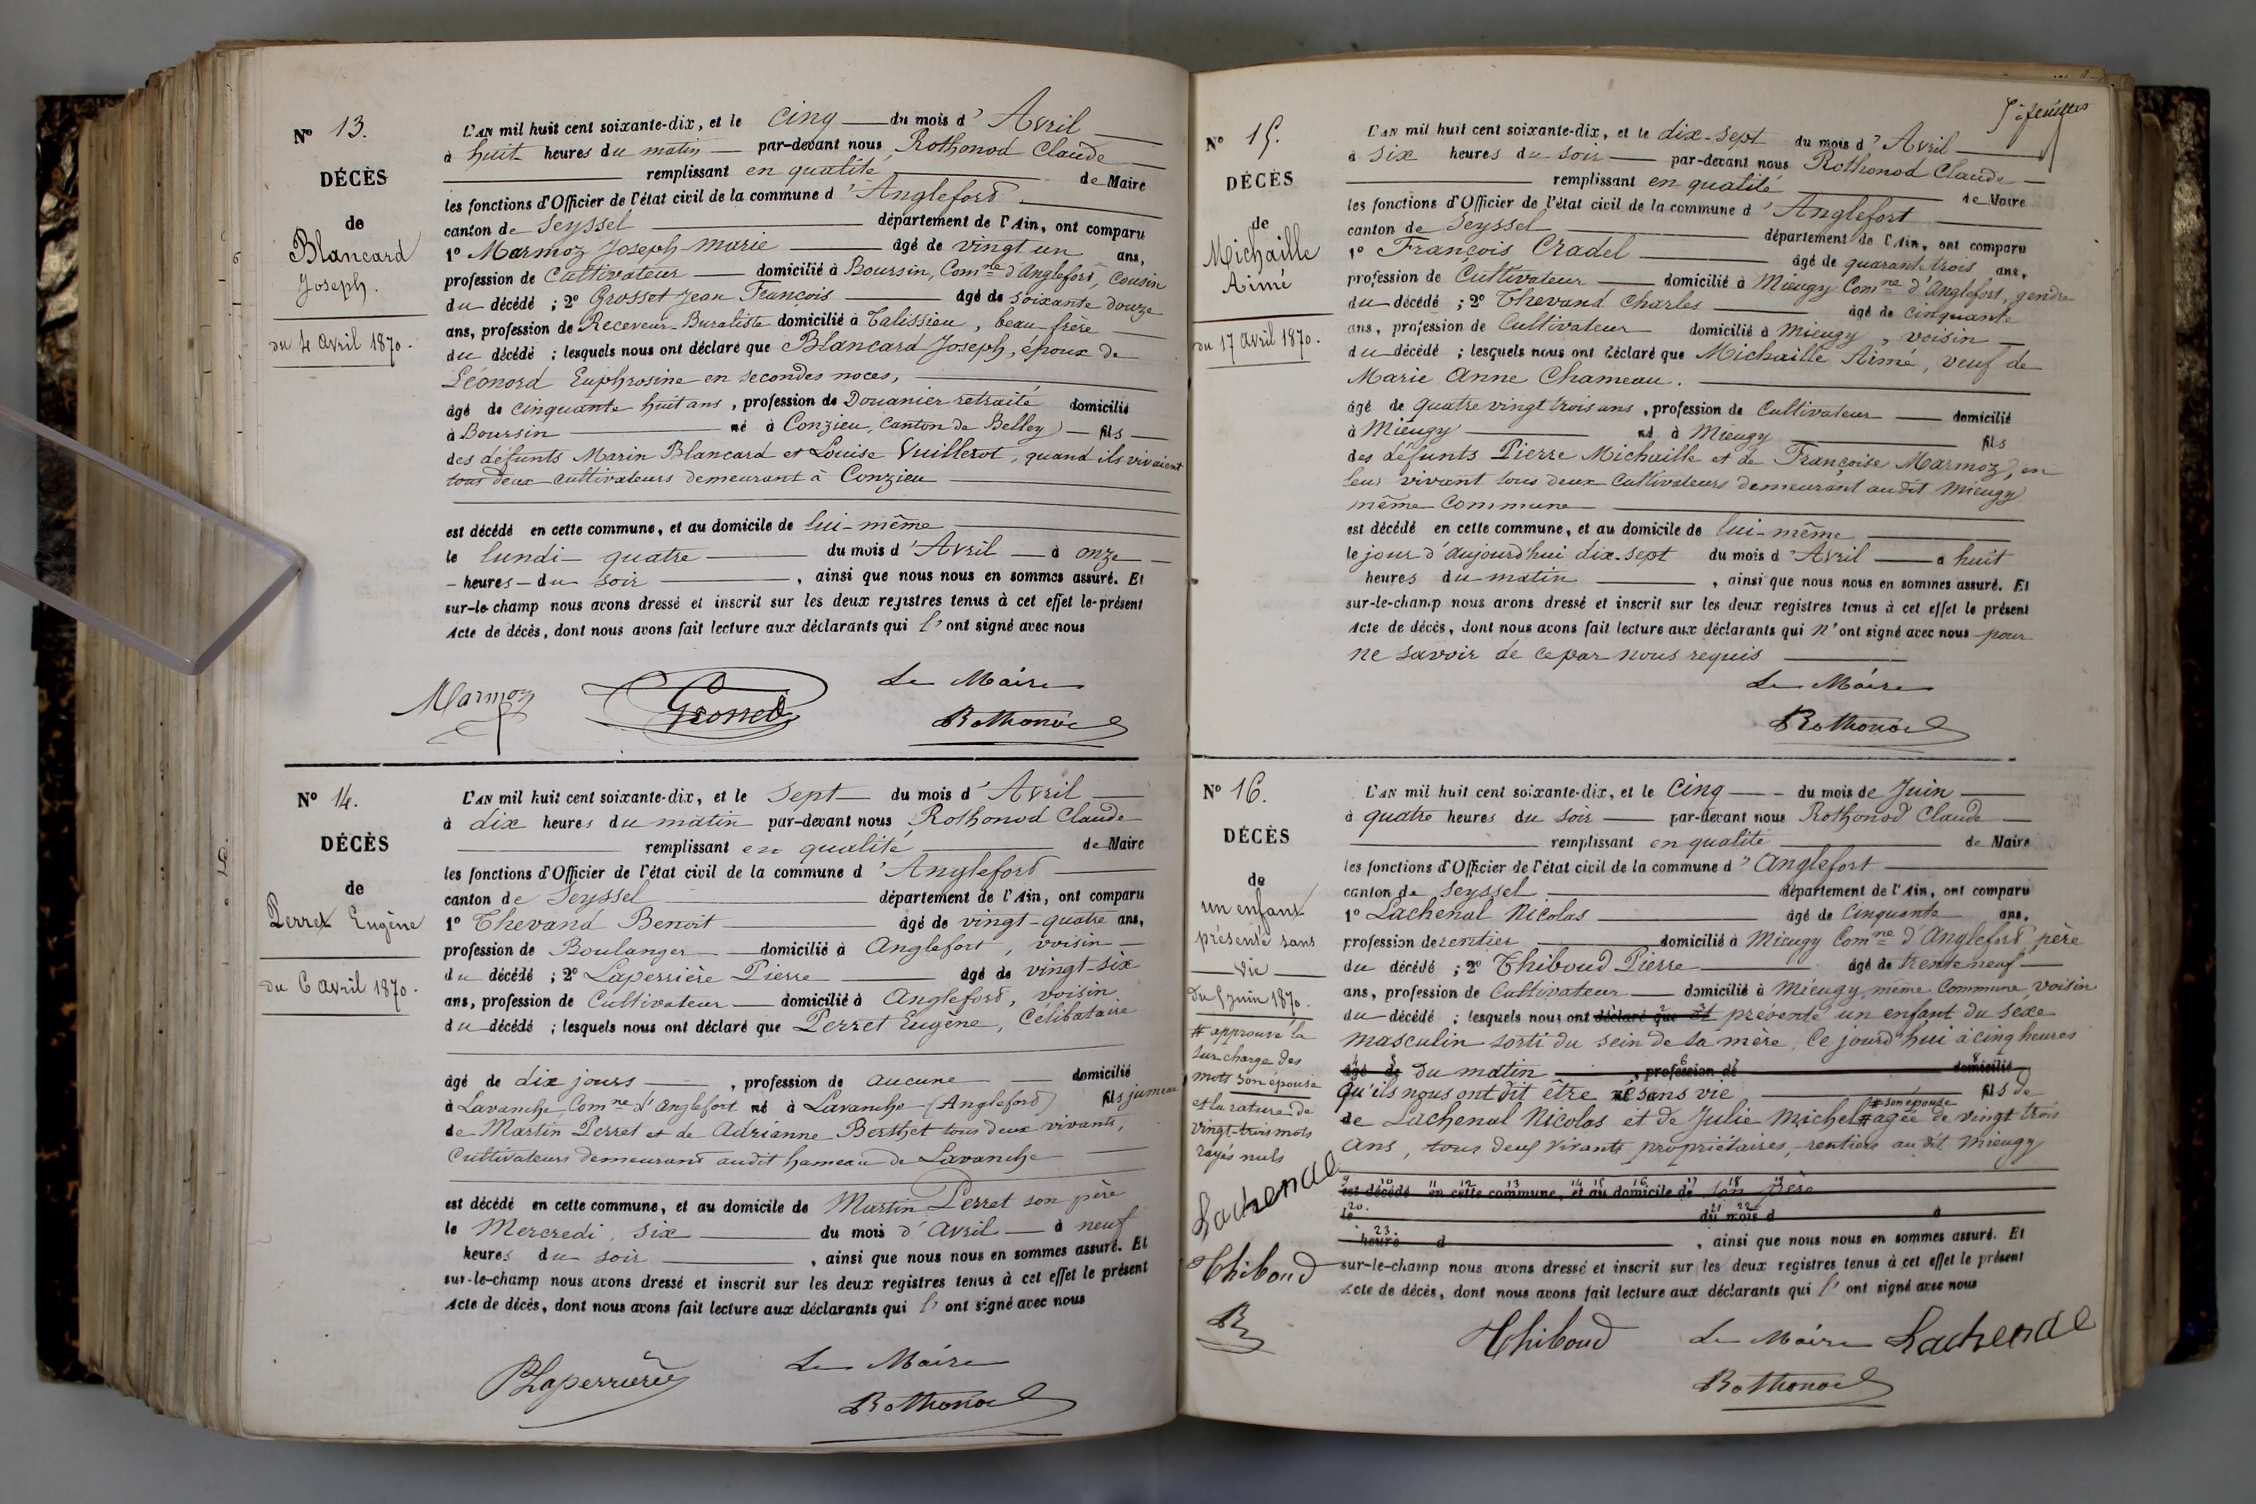 N° 13.
DÉCÈS
de
Blancard
Joseph.
du 4 avril 1870.
L'AN mil huit cent soixante-dix, et le cinq du mois d'Avril
à huit heures du matin par-devant nous Rothonod Claude
remplissant en qualité de Maire
les fonctions d'Officier de l'état civil de la commune d'Anglefort
canton de Seyssel département de l'Ain, ont comparu
1° Marmoz Joseph-marie âgé de vingt un ans,
profession de Cultivateur domicilié à Boursin, Comne d'Anglefort, cousin
du décédé ; 2° Grosset Jean François âgé de soixante douze
ans, profession de Receveur-Buraliste domicilié à Talissieu, beau-frère
du décédé ; lesquels nous ont déclaré que Blancard Joseph, époux de
Léonord Euphrosine en secondes noces,
âgé de cinquante huit ans, profession de Douanier retraité domicilié
à Boursin né à Conzieu, canton de Belley fils
des défunts Marin Blancard et Louise Vuillerot, quand ils vivaient
tous deux cultivateurs demeurant à Conzieu
est décédé en cette commune, et au domicile de lui-même
le lundi quatre du mois d'Avril à onze
heures du soir, ainsi que nous nous en sommes assuré. Et
sur-le-champ nous avons dressé et inscrit sur les deux registres tenus à cet effet le présent
Acte de décès, dont nous avons fait lecture aux déclarants qui l'ont signé avec nous
Le Maire
Marmoz Grosset Rothonod
N° 14.
DÉCÈS
de
Perret Eugène
du 6 avril 1870.
L'AN mil huit cent soixante-dix, et le sept du mois d'Avril
à dix heures du matin par-devant nous Rothonod Claude
remplissant en qualité de Maire
les fonctions d'Officier de l'état civil de la commune d'Anglefort
canton de Seyssel département de l'Ain, ont comparu
1° Thevand Benoit âgé de vingt-quatre ans,
profession de Boulanger domicilié à Anglefort, voisin
du décédé ; 2° Laperrière Pierre âgé de vingt-six
ans, profession de Cultivateur domicilié à Anglefort, voisin
du décédé ; lesquels nous ont déclaré que Perret Eugène, Célibataire
âgé de dix jours, profession de aucune domicilié
à Lavanche, Comne d'Anglefort né à Lavanche (Anglefort) fils jumeau
de Martin Perret et de Adrianne Berthet tous deux vivants,
Cultivateurs demeurant audit hameau de Lavanche
est décédé en cette commune, et au domicile de Martin Perret son père
le Mercredi, six du mois d'avril à neuf
heures du soir, ainsi que nous nous en sommes assuré. Et
sur-le-champ nous avons dressé et inscrit sur les deux registres tenus à cet effet le présent
Acte de décès, dont nous avons fait lecture aux déclarants qui l'ont signé avec nous
Le Maire
PLaperrière Rothonod
5e feuillet
N° 15.
DÉCÈS
de
Michaille
Aimé
du 17 avril 1870.
L'AN mil huit cent soixante-dix, et le dix-sept du mois d'Avril
à six heures du soir par-devant nous Rothonod Claude
remplissant en qualité de Maire
les fonctions d'Officier de l'état civil de la commune d'Anglefort
canton de Seyssel département de l'Ain, ont comparu
1° François Cradel âgé de quarante trois ans,
profession de Cultivateur domicilié à Mieugy Comne d'Anglefort, gendre
du décédé ; 2° Thevand Charles âgé de cinquante
ans, profession de Cultivateur domicilié à mieugy, voisin
du décédé ; lesquels nous ont déclaré que Michaille Aimé, veuf de
Marie Anne Chameau.
âgé de quatre vingt trois ans, profession de Cultivateur domicilié
à Mieugy né à Mieugy fils
des défunts Pierre Michaille et de Françoise Marmoz, en
leur vivant tous deux Cultivateurs demeurant audit mieugy
même commune
est décédé en cette commune, et au domicile de lui-même
le jour d'aujourd'hui dix-sept du mois d'Avril à huit
heures du matin, ainsi que nous nous en sommes assuré. Et
sur-le-champ nous avons dressé et inscrit sur les deux registres tenus à cet effet le présent
Acte de décès, dont nous avons fait lecture aux déclarants qui n'ont signé avec nous pour
ne savoir de ce par nous requis
Le Maire
Rothonod
N° 16.
DÉCÈS
de
un enfant
présenté sans
vie
du 5 juin 1870.
# approuvé la
surcharge des
mots son épouse
et la rature de
vingt-trois mots
rayés nuls
Lachenal
Thiboud
R
L'AN mil huit cent soixante-dix, et le cinq du mois de Juin
à quatre heures du soir par-devant nous Rothonod Claude
remplissant en qualité de Maire
les fonctions d'Officier de l'état civil de la commune d'Anglefort
canton de Seyssel département de l'Ain, ont comparu
1° Lachenal Nicolas âgé de Cinquante ans,
profession de rentier domicilié à Mieugy Comne d'Anglefort, père
du décédé ; 2° Thiboud Pierre âgé de trente neuf
ans, profession de Cultivateur domicilié à Mieugy, même Commune, voisin
du décédé ; lesquels nous ont déclaré que et présenté un enfant du sexe
masculin sorti du sein de sa mère, Ce jourd'hui à cinq heures
âgé de du matin, profession de domicilié
qu'ils nous ont dit être né sans vie fils de
# son épouse
de Lachenal Nicolas et de Julie Michel # agée de vingt trois
ans, tous deux vivants propriétaires-rentiers audit mieugy
est décédé en cette commune, et au domicile de son père
le du mois d à
heure d, ainsi que nous nous en sommes assuré. Et
sur-le-champ nous avons dressé et inscrit sur les deux registres tenus à cet effet le présent
Acte de décès, dont nous avons fait lecture aux déclarants qui l'ont signé avec nous
Thiboud Le Maire Lachenal
Rothonod